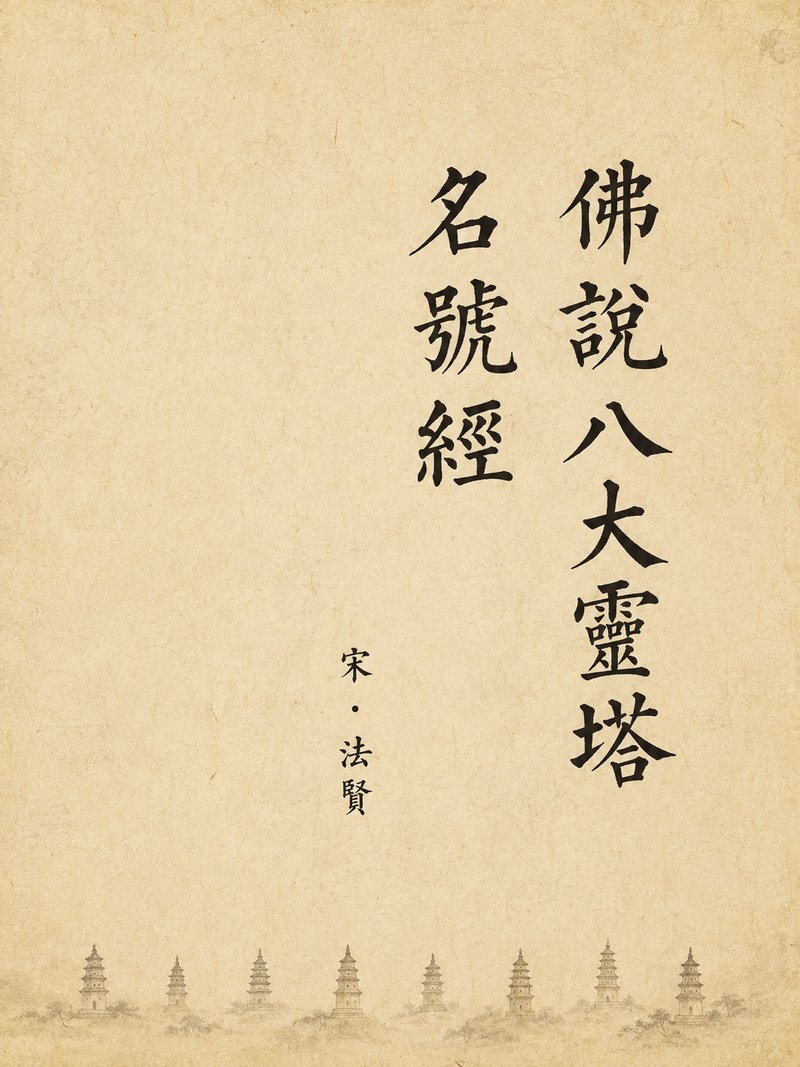 佛說八大靈塔
名號經
宋・法賢